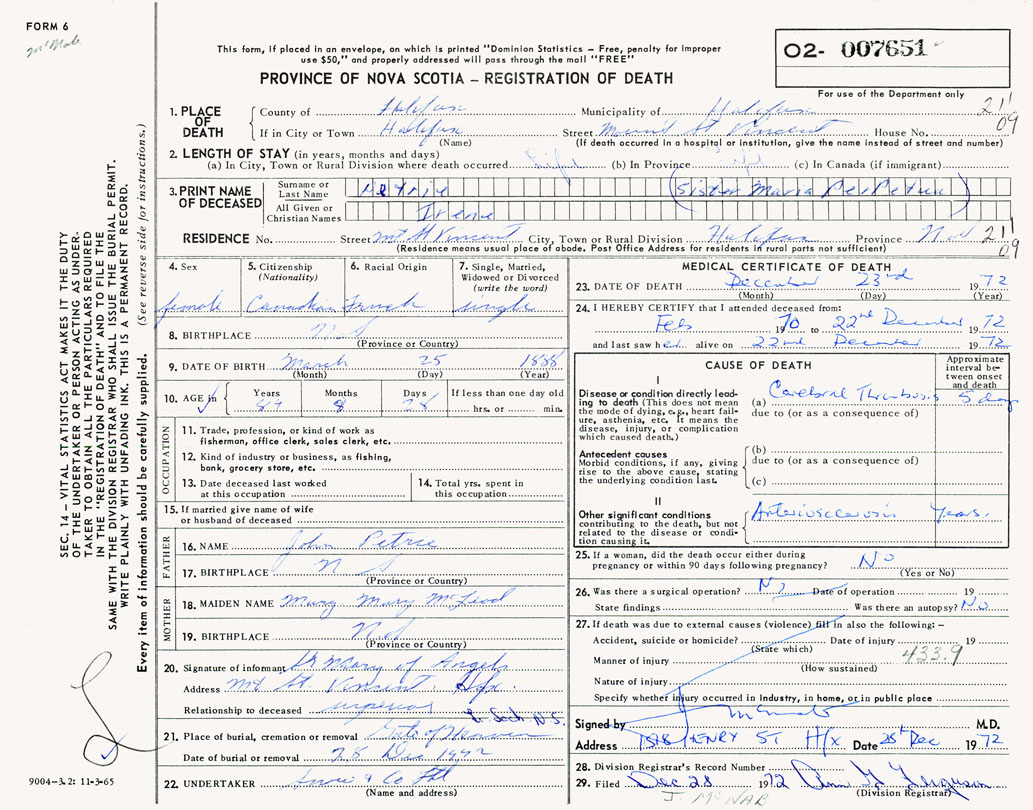 FORM 6
McNab
This form, if placed in an envelope, on which is printed "Dominion Statistics – Free, penalty for improper
use $50," and properly addressed will pass through the mail "FREE"
PROVINCE OF NOVA SCOTIA – REGISTRATION OF DEATH
02- 007651
For use of the Department only
1. PLACE OF DEATH
County of Halifax Municipality of Halifax 211
If in City or Town Halifax Street Mount St Vincent House No. 09
(Name) (If death occurred in a hospital or institution, give the name instead of street and number)
2. LENGTH OF STAY (in years, months and days)
(a) In City, Town or Rural Division where death occurred Life (b) In Province Life (c) In Canada (if immigrant)
3. PRINT NAME OF DECEASED
Surname or Last Name Petrie (Sister Maria Perpetua)
All Given or Christian Names Irene
RESIDENCE No. Street Mt St Vincent City, Town or Rural Division Halifax Province N.S. 211
(Residence means usual place of abode. Post Office Address for residents in rural parts not sufficient) 09
4. Sex female
5. Citizenship (Nationality) Canadian
6. Racial Origin French
7. Single, Married, Widowed or Divorced (write the word) single
8. BIRTHPLACE N S
(Province or Country)
9. DATE OF BIRTH March 25 1888
(Month) (Day) (Year)
10. AGE in Years 84 Months 8 Days 28 If less than one day old
hrs. or min.
OCCUPATION
11. Trade, profession, or kind of work as
fisherman, office clerk, sales clerk, etc.
12. Kind of industry or business, as fishing,
bank, grocery store, etc.
13. Date deceased last worked
at this occupation
14. Total yrs. spent in
this occupation
15. If married give name of wife
or husband of deceased
FATHER
16. NAME John Petrie
17. BIRTHPLACE N S
(Province or Country)
MOTHER
18. MAIDEN NAME Mary Mary McLeod
19. BIRTHPLACE N.S.
(Province or Country)
20. Signature of informant Sr Mary of Angels
Address Mt St. Vincent, Hfx.
Relationship to deceased superior
21. Place of burial, cremation or removal Gate of Heaven L. Sack N.S.
Date of burial or removal 28 Dec 1972
22. UNDERTAKER Snow & Co Ltd
(Name and address)
MEDICAL CERTIFICATE OF DEATH
23. DATE OF DEATH December 23rd 1972
(Month) (Day) (Year)
24. I HEREBY CERTIFY that I attended deceased from:
Feb 1970 to 22nd December 1972
and last saw her alive on 22nd December 1972
CAUSE OF DEATH
Approximate interval between onset and death
I
Disease or condition directly leading
to death (This does not mean
the mode of dying, e.g., heart failure,
asthenia, etc. It means the
disease, injury, or complication
which caused death.)
(a) Cerebral Thrombosis 5 days
due to (or as a consequence of)
Antecedent causes
Morbid conditions, if any, giving
rise to the above cause, stating
the underlying condition last.
(b)
due to (or as a consequence of)
(c)
II
Other significant conditions
contributing to the death, but not
related to the disease or condition
causing it.
Arteriosclerosis Years.
25. If a woman, did the death occur either during
pregnancy or within 90 days following pregnancy? No
(Yes or No)
26. Was there a surgical operation? No Date of operation 19
State findings Was there an autopsy? No
27. If death was due to external causes (violence) fill in also the following: –
Accident, suicide or homicide? Date of injury 19
(State which) 433.9
Manner of injury
(How sustained)
Nature of injury
Specify whether injury occurred in Industry, in home, or in public place
Signed by J McNab M.D.
Address HENRY ST Hfx Date 28th Dec 1972
28. Division Registrar's Record Number
29. Filed Dec 28 1972 Ann G. Ferguson
J McNAB (Division Registrar)
SEC. 14 – VITAL STATISTICS ACT MAKES IT THE DUTY
OF THE UNDERTAKER OR PERSON ACTING AS UNDERTAKER
TO OBTAIN ALL THE PARTICULARS REQUIRED
IN THE "REGISTRATION OF DEATH" AND TO FILE THE
SAME WITH THE DIVISION REGISTRAR WHO SHALL ISSUE THE BURIAL PERMIT.
WRITE PLAINLY WITH UNFADING INK. THIS IS A PERMANENT RECORD.
Every item of information should be carefully supplied. (See reverse side for instructions.)
9004-3.2: 11-3-65